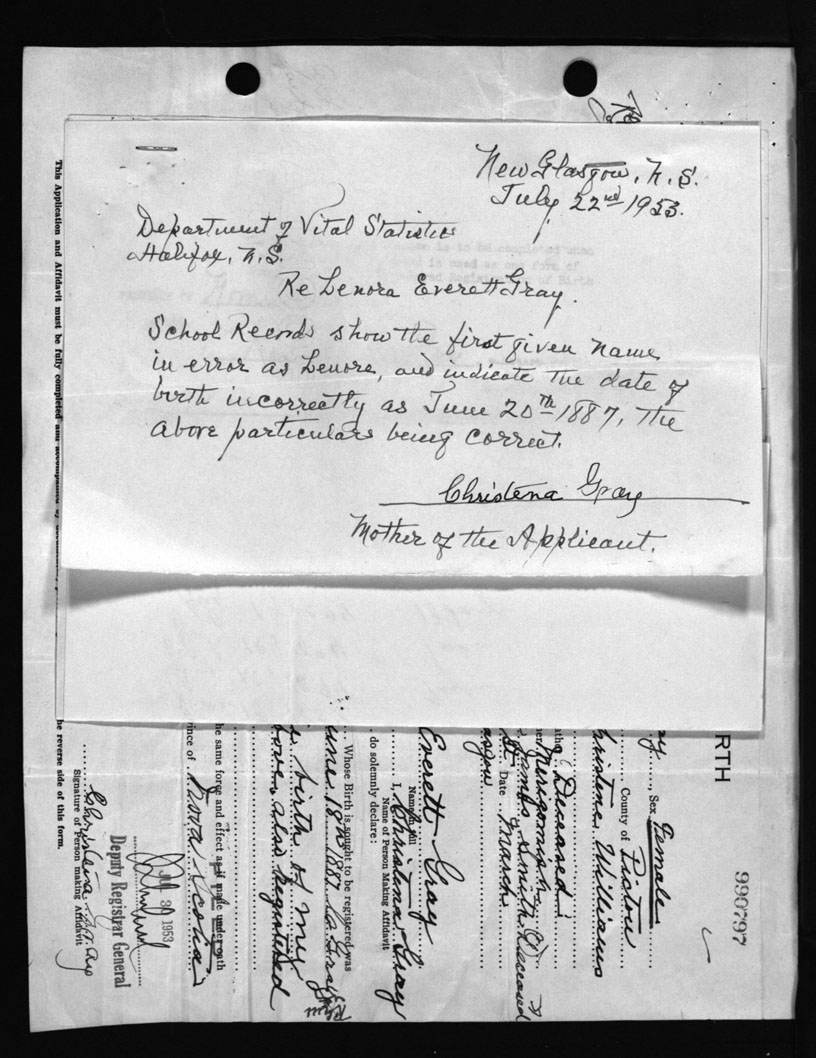 New Glasgow, N.S.
July 22nd 1953.
Department of Vital Statistics
Halifax, N.S.
Re Lenora Everett Gray.
School Records show the first given name
in error as Lenore, and indicate the date of
birth incorrectly as June 20th 1887, the
above particulars being correct.
Christena Gray
Mother of the Applicant.
This Application and Affidavit must be fully completed and accompanied by
he reverse side of this form.
RTH
990797
Sex Female
County of Pictou
hristene Williams
Deceased
Merigomish
James Smith
Deceased
Date March
asgow
Everett Gray
Name in full
I, Christena Gray
Name of Person Making Affidavit
do solemnly declare:
Whose Birth is sought to be registered was
une 18th 1887
birth of my
above also registered
he same force and effect as if made under oath
ince of Nova Scotia
JUL 30 1953
Deputy Registrar General
Christena Gray
Signature of Person making Affidavit